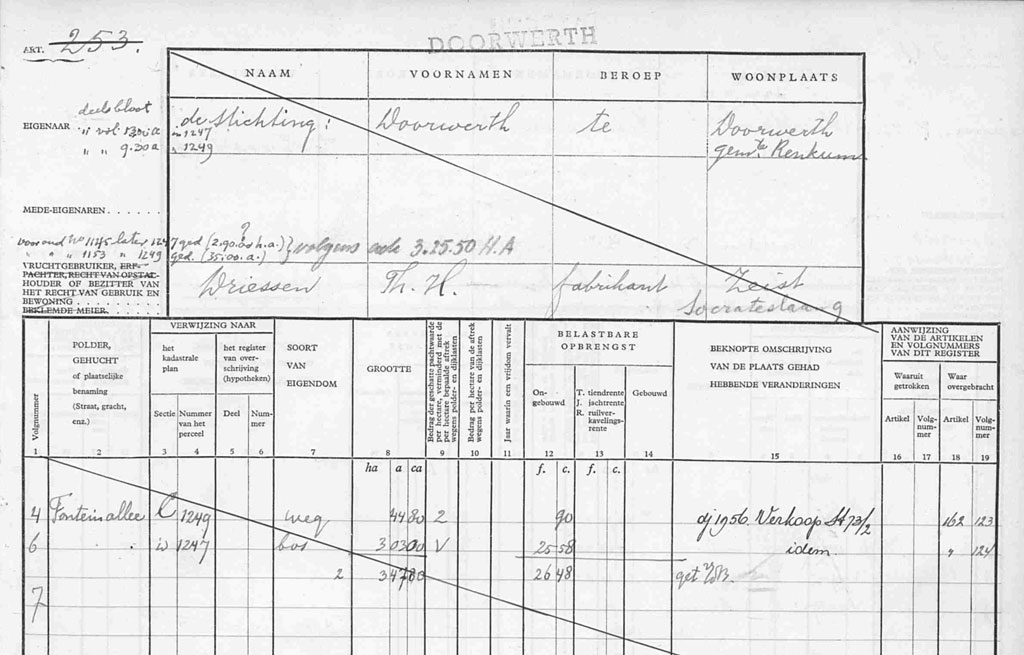 ART. 253.
DOORWERTH
NAAM VOORNAMEN BEROEP WOONPLAATS
EIGENAAR
deels bloot
" vol 1.30.0 a
" " 9.30 a
in 1247
" 1249
de Stichting: Doorwerth te Doorwerth
gemte Renkum
MEDE-EIGENAREN . . . . . .
?
voor oud No 1145 later 1247 ged (2.90.00 h.a.) } volgens acte 3.25.50 H.A
" " " 1153 " 1249 ged. (35.00.a.)
VRUCHTGEBRUIKER, ERF-
PACHTER, RECHT VAN OPSTAL-
HOUDER OF BEZITTER VAN
HET RECHT VAN GEBRUIK EN
BEWONING . . . . . . . . .
BEKLEMDE MEIER. . . . . . .
Driessen Th. H. fabrikant Zeist
Socrateslaan 9
Volgnummer
POLDER,
GEHUCHT
of plaatselijke
benaming
(Straat, gracht,
enz.)
VERWIJZING NAAR
het
kadastrale
plan
het register
van over-
schrijving
(hypotheken)
Sectie
Nummer
van het
perceel
Deel
Num-
mer
SOORT
VAN
EIGENDOM
GROOTTE
Bedrag der geschatte pachtwaarde
per hectare, verminderd met de
per hectare bepaalde aftrek
wegens polder- en dijklasten
Bedrag per hectare van de aftrek
wegens polder- en dijklasten
Jaar waarin een vrijdom vervalt
BELASTBARE
OPBRENGST
On-
gebouwd
T. tiendrente
J. ischtrente
R. ruilver-
kavelings-
rente
Gebouwd
BEKNOPTE OMSCHRIJVING
VAN DE PLAATS GEHAD
HEBBENDE VERANDERINGEN
AANWIJZING
VAN DE ARTIKELEN
EN VOLGNUMMERS
VAN DIT REGISTER
Waaruit
getrokken
Waar
overgebracht
Artikel
Volg-
num-
mer
Artikel
Volg-
num-
mer
1 2 3 4 5 6 7 8 9 10 11 12 13 14 15 16 17 18 19
ha a ca f. c. f. c.
4 Fonteinallee C 1249 weg 44 80 2 90 dj 1956 Verkoop St 73/2 162 123
6 " 1247 bos 3 03 00 V 25 58 idem " 124
2 3 47 80 26 48 get
7